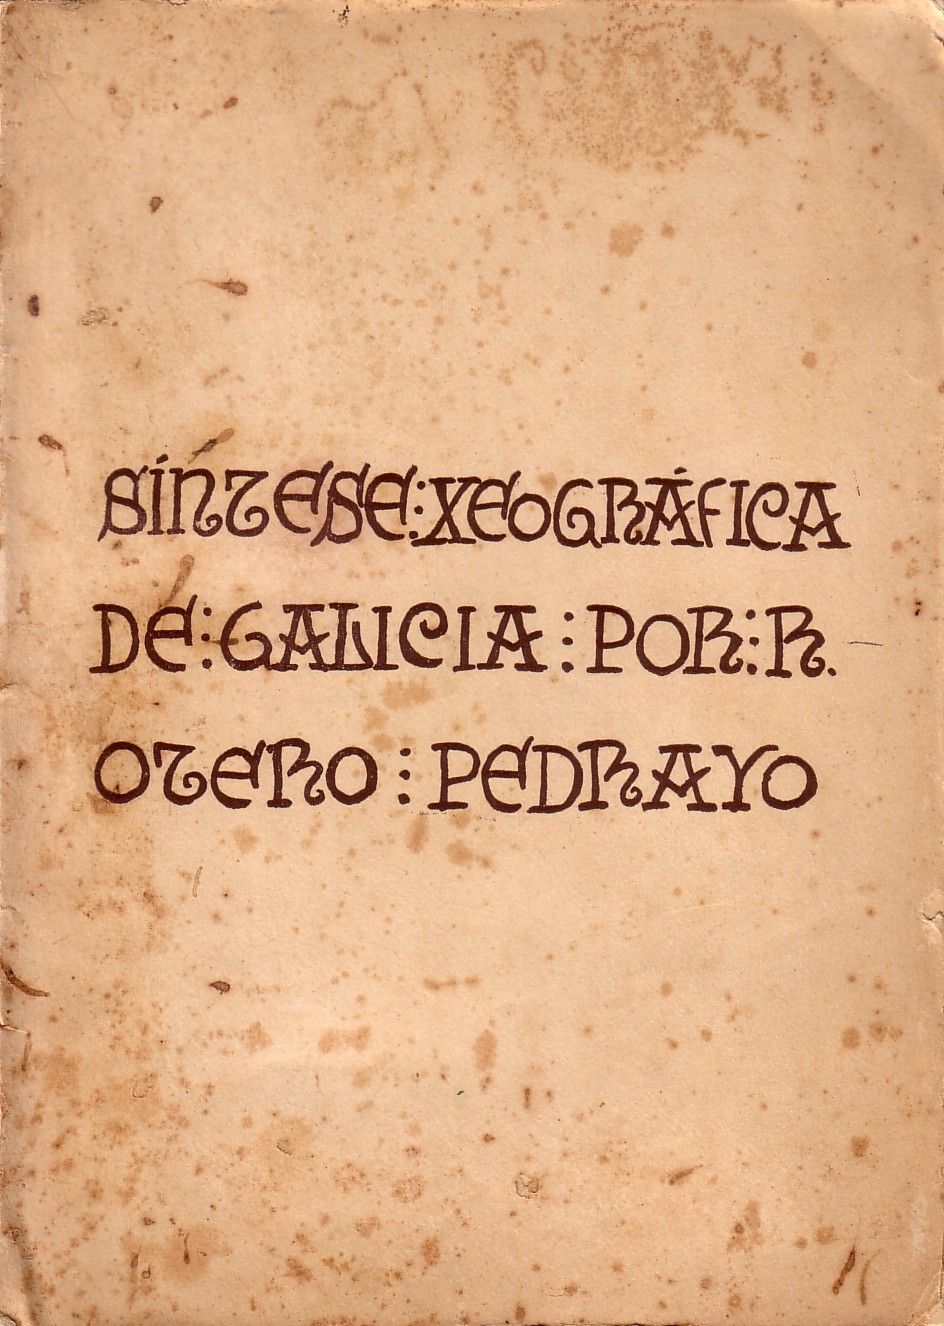 SÍNTESE:XEOGRÁFICA
DE:GALICIA⋮POR⋮R.
OTERO⋮PEDRAYO